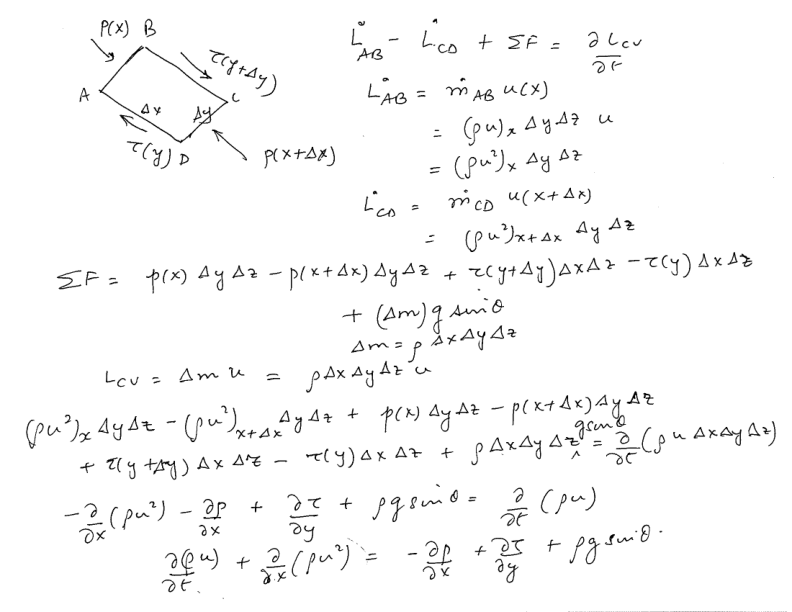 P(x) B
τ(y+Δy)
A
Δx
Δy
C
τ(y) D
p(x+Δx)
L̇_AB - L̇_CD + ΣF = ∂L_CV/∂t
L̇_AB = ṁ_AB u(x)
= (ρu)_x Δy Δz u
= (ρu²)_x Δy Δz
L̇_CD = ṁ_CD u(x+Δx)
= (ρu²)_x+Δx Δy Δz
ΣF = p(x) Δy Δz - p(x+Δx) Δy Δz + τ(y+Δy) Δx Δz - τ(y) Δx Δz
+ (Δm) g sinθ
Δm = ρ Δx Δy Δz
L_CV = Δm u = ρ Δx Δy Δz u
(ρu²)_x Δy Δz - (ρu²)_x+Δx Δy Δz + p(x) Δy Δz - p(x+Δx) Δy Δz
+ τ(y+Δy) Δx Δz - τ(y) Δx Δz + ρ Δx Δy Δz g sinθ = ∂/∂t (ρ u Δx Δy Δz)
-∂/∂x (ρu²) - ∂p/∂x + ∂τ/∂y + ρg sinθ = ∂/∂t (ρu)
∂(ρu)/∂t + ∂/∂x (ρu²) = -∂p/∂x + ∂τ/∂y + ρg sinθ.